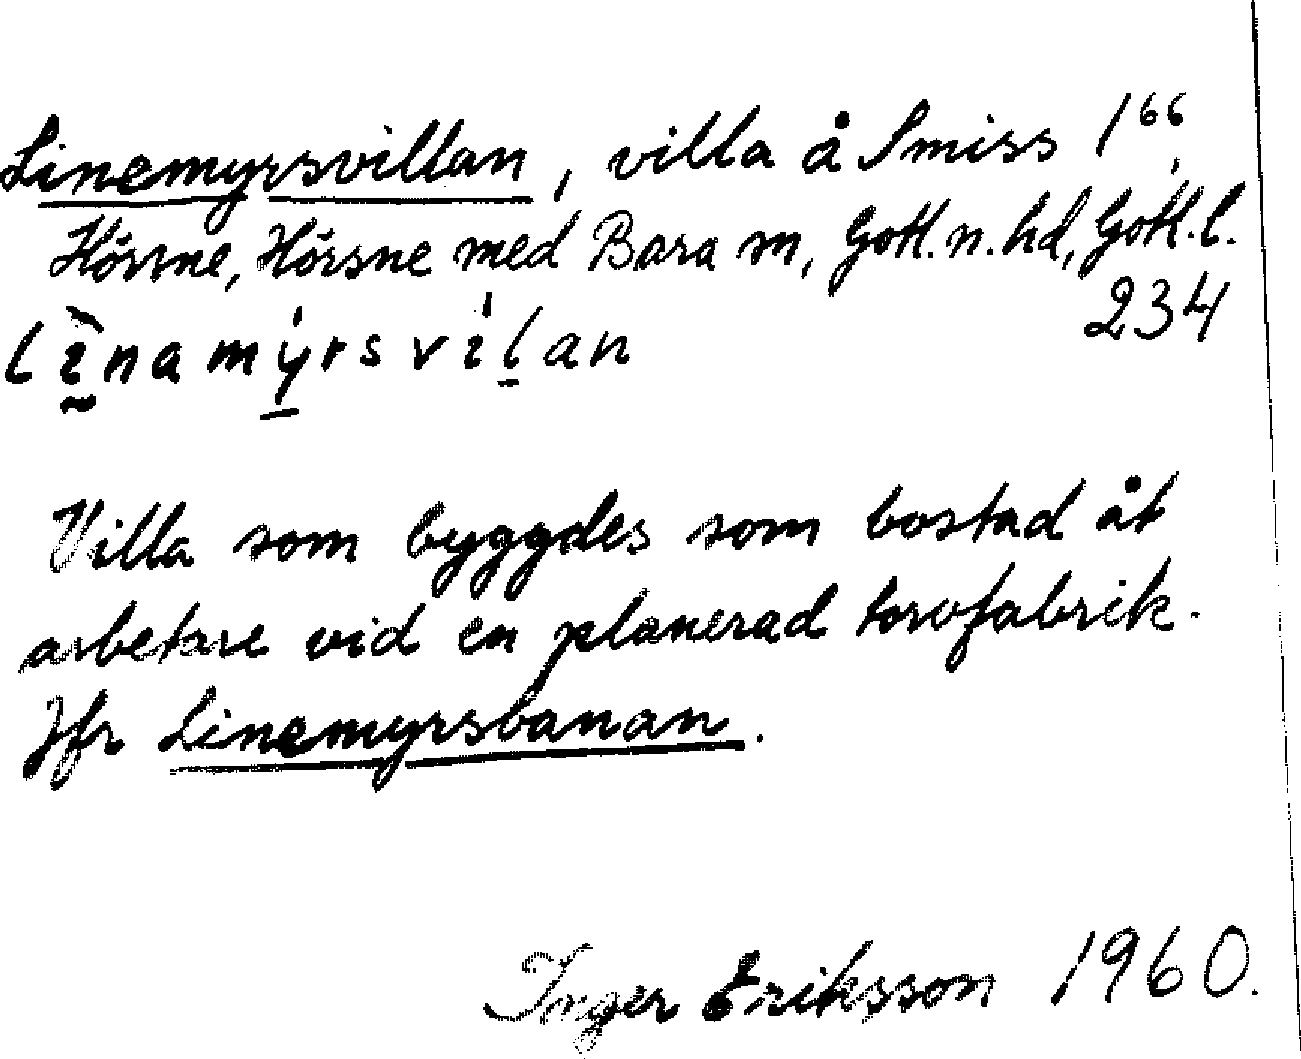 Linemyrsvillan, villa å Smiss 1⁶⁶,
Hörsne, Hörsne med Bara sn, Gotl. n. hd, Gotl. l.
234
līnamy̱rsviḻan
Villa som byggdes som bostad åt
arbetare vid en planerad torvfabrik.
Jfr Linemyrsbanan.
Inger Eriksson 1960.